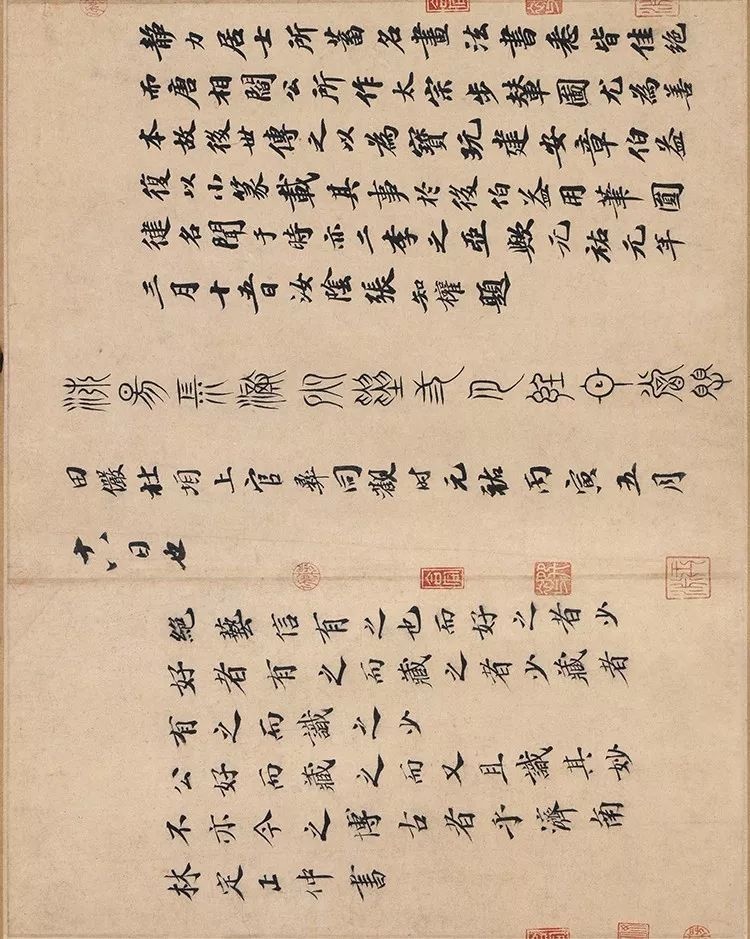 靜力居士所蓄名畫法書悉皆佳絕
而唐相閻公所作太宗步輦圖尤為善
本故後世傳之以為寶玩建安章伯益
復以小篆載其事於後伯益用筆圓
健名聞于時亦二李之亞歟元祐元年
三月十五日汝陰張知權題
田儼杜垧上官彝同觀时元祐丙寅五月
十八日也
絕藝信有之也而好之者少
好者有之而藏之者少藏者
有之而識之少
公好而藏之而又且識其妙
不亦今之博古者乎濟南
林定正仲書